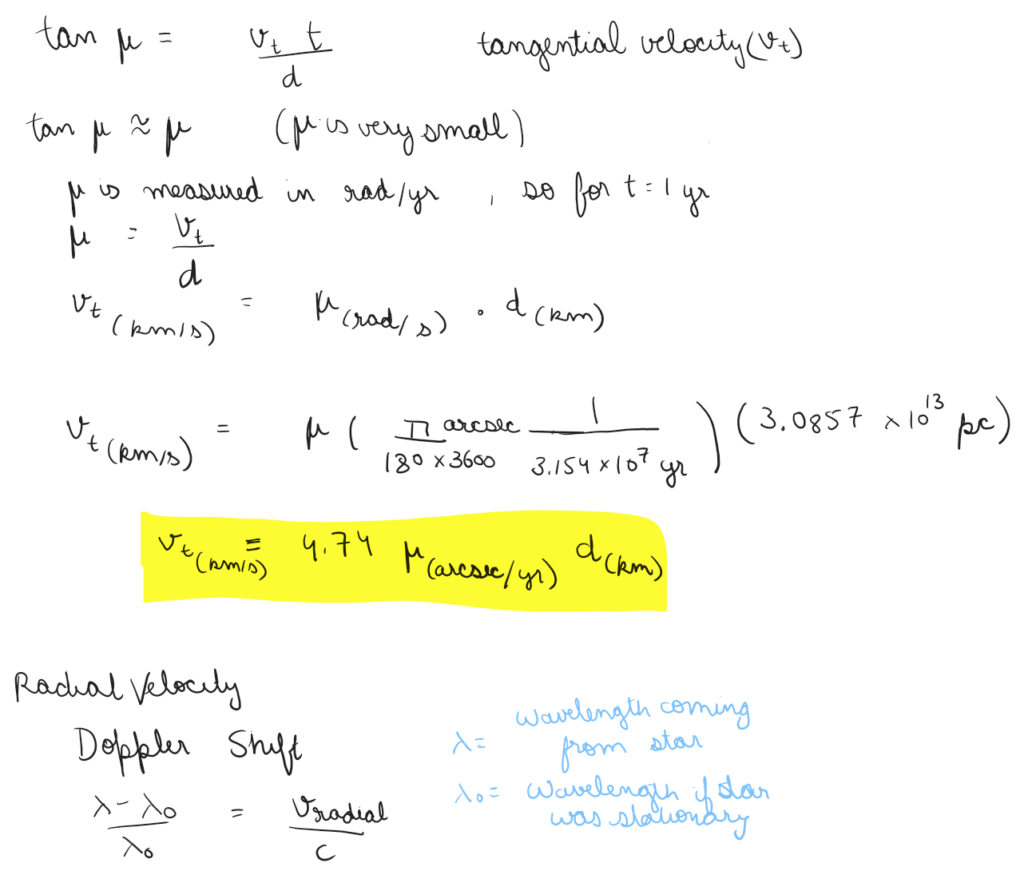 tan μ = v_t t / d    tangential velocity (v_t)
tan μ ≈ μ    (μ is very small)
μ is measured in rad/yr , so for t = 1 yr
μ = v_t / d
v_t (km/s) = μ (rad/s) · d (km)
v_t (km/s) = μ ( π arcsec / 180 × 3600  1 / 3.154 × 10^7 yr ) (3.0857 × 10^13 pc)
v_t (km/s) = 4.74 μ (arcsec/yr) d (km)
Radial Velocity
Doppler Shift
λ - λ₀ / λ₀ = v_radial / c
λ = wavelength coming
from star
λ₀ = wavelength if star
was stationary